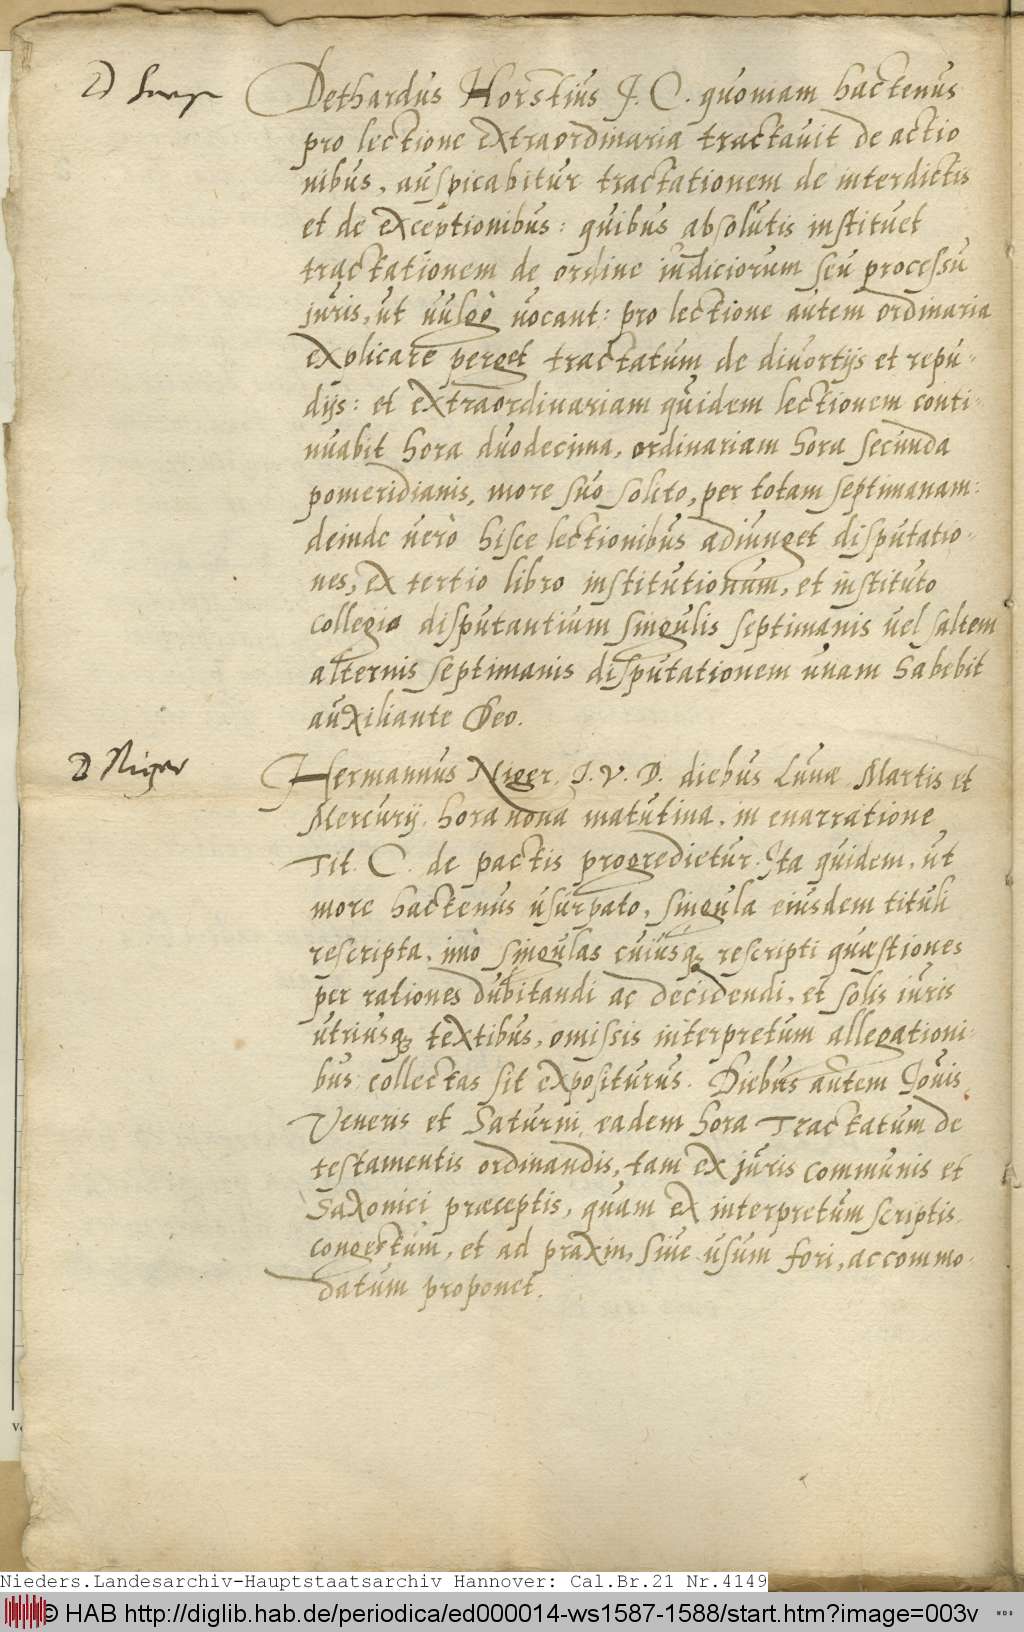 D
Dethardus Horstius J. C. quoniam hactenus
pro lectione extraordinaria tractauit de actio
nibus, auspicabitur tractationem de interdictis
et de exceptionibus: quibus absolutis instituet
tractationem de ordine iudiciorum seu processu
juris, ut uulgò uocant: pro lectione autem ordinaria
explicare perget tractatum de diuortijs et repu-
dijs: et extraordinariam quidem lectionem conti-
nuabit hora duodecima, ordinariam hora secunda
pomeridianis, more suo solito, per totam septimanam:
deinde uerò hisce lectionibus adiunget disputatio-
nes, ex tertio libro institutionum, et instituto
collegio disputantium singulis septimanis uel saltem
alternis septimanis disputationem unam habebit
auxiliante Deo.
D Niger
Hermannus Niger. J. V. D. diebus Lunæ Martis et
Mercurij, hora nona matutina, in enarratione
Tit. C. de pactis progredietur. Ita quidem, ut
more hactenus usurpato, singula eiusdem tituli
rescripta, imò singulas cuiusq; rescripti quæstiones
per rationes dubitandi ac decidendi, et solis iuris
utriusq; textibus, omissis interpretum allegationi-
bus collectas sit expositurus. Diebus autem Jouis
Veneris et Saturni, eadem hora Tractatum de
testamentis ordinandis, tam ex juris communis et
Saxonici præceptis, quam ex interpretum scriptis
congestum, et ad praxin, siue usum fori, accommo-
datum proponet.
Nieders.Landesarchiv-Hauptstaatsarchiv Hannover: Cal.Br.21 Nr.4149
© HAB http://diglib.hab.de/periodica/ed000014-ws1587-1588/start.htm?image=003v